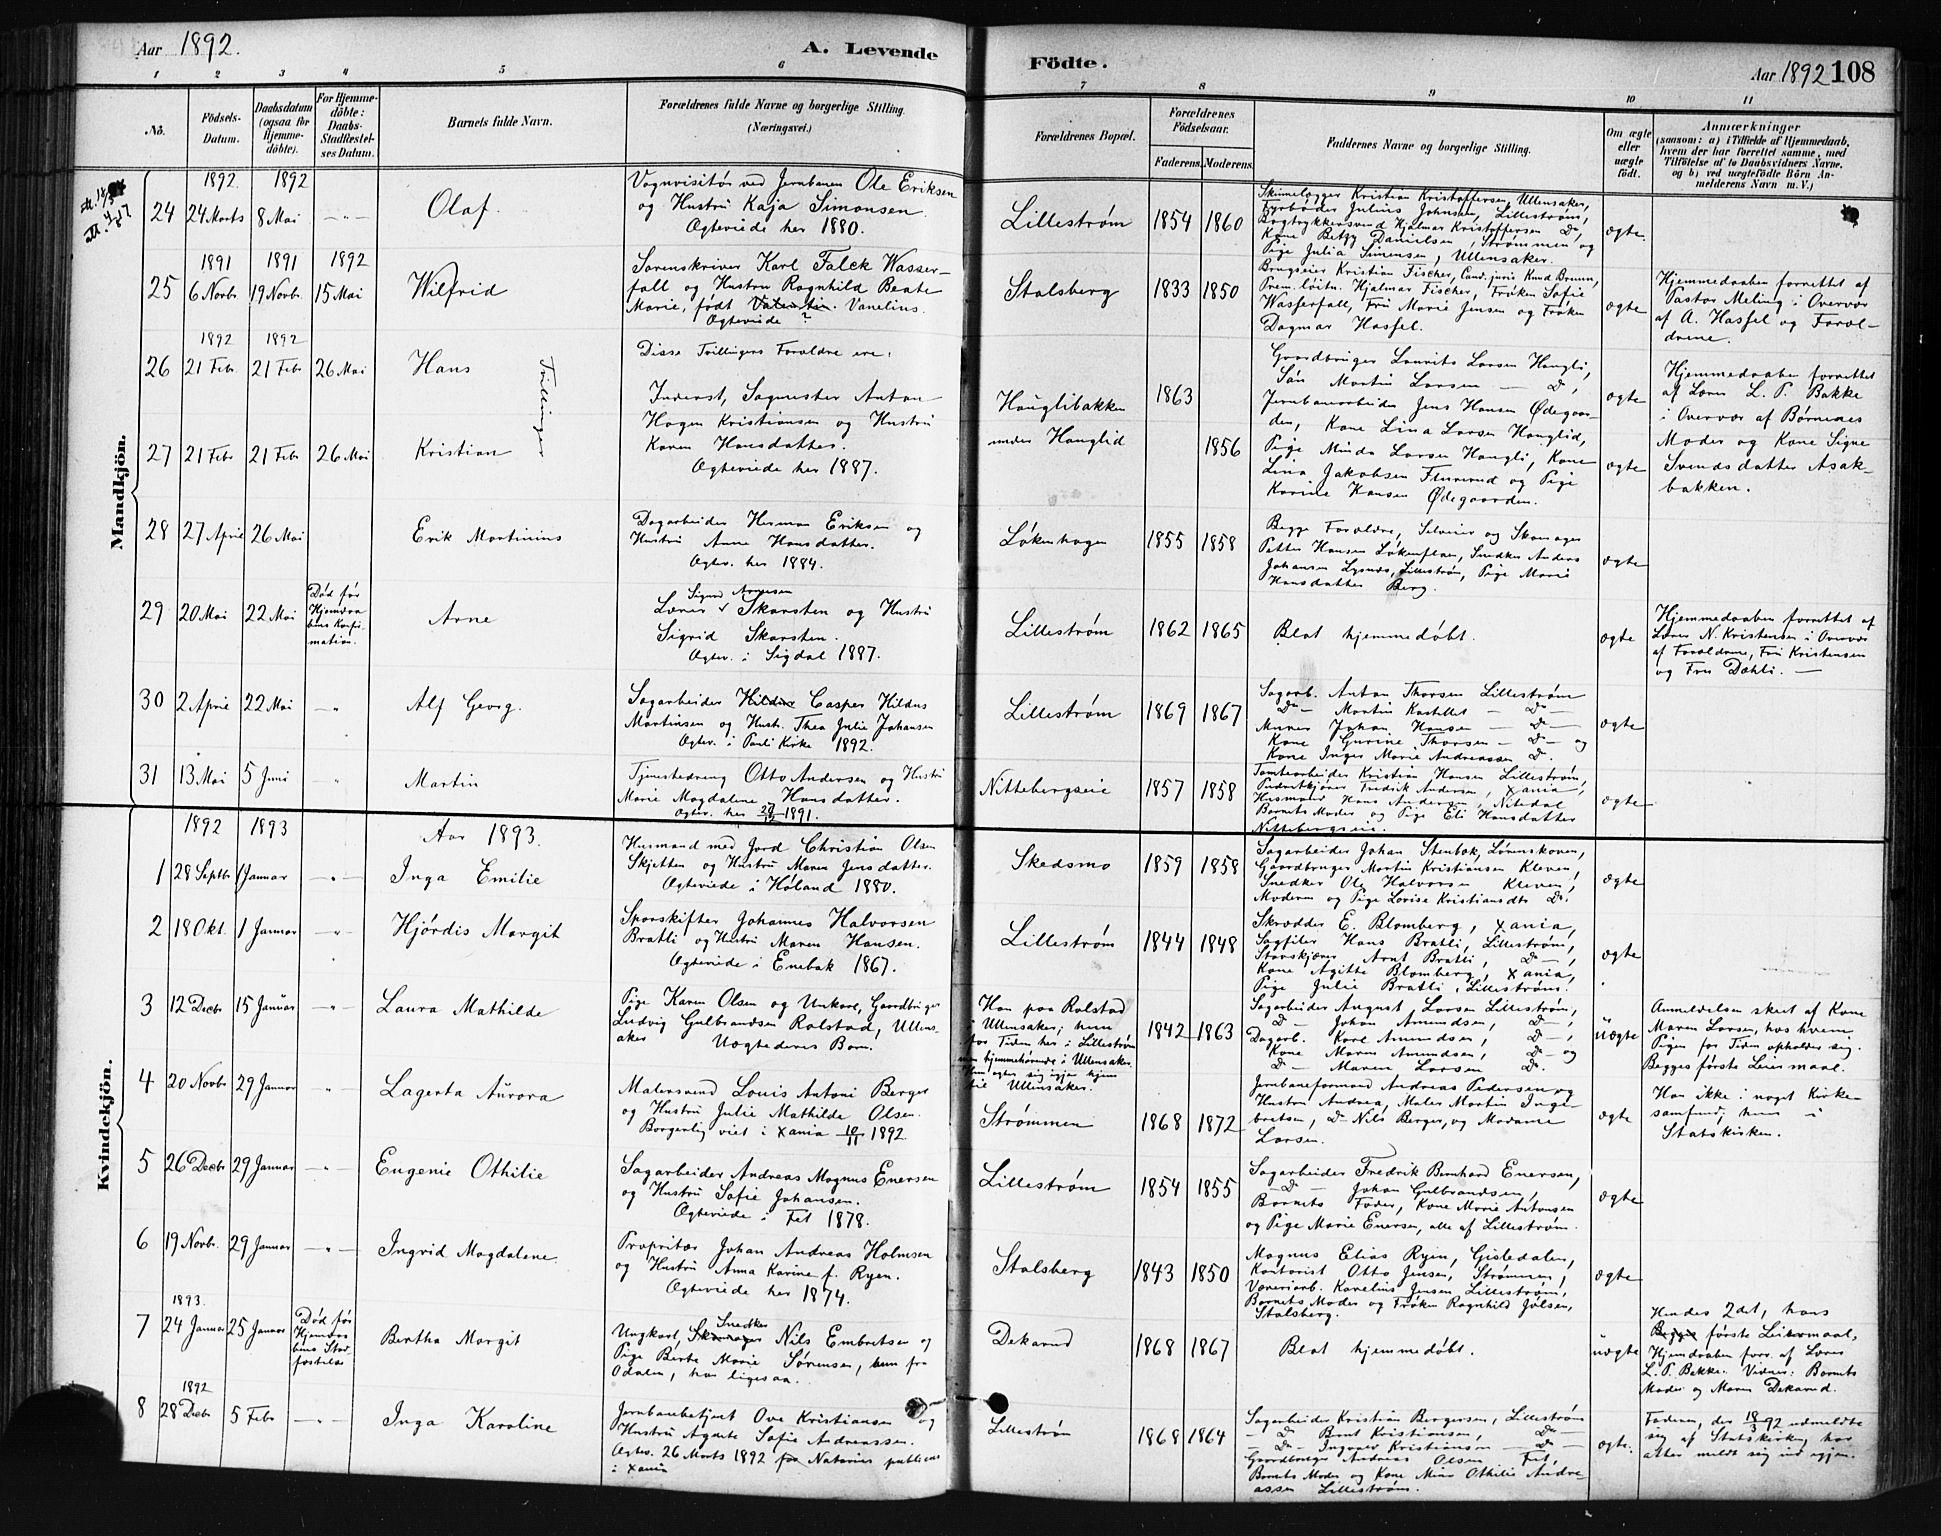 Aar 1892.
A. Levende
Födte.
Aar 1892 108
1 2 3 4 5 6 7 8 9 10 11
No.
Födsels-
Datum.
Daabsdatum
(ogsaa for
Hjemme-
döbte).
For Hjemme-
döbte:
Daabs-
Stadfæstel-
ses Datum.
Barnets fulde Navn.
Forældrenes fulde Navne og borgerlige Stilling.
(Næringsvei.)
Forældrenes Bopæl.
Forældrenes
Födselsaar.
Faderens. Moderens.
Faddernes Navne og borgerlige Stilling.
Om ægte
eller
uægte
födt.
Anmærkninger
(saasom: a) i Tilfælde af Hjemmedaab,
hvem der har forrettet samme, med
Tilföielse af to Daabsvidners Navne,
og b) ved uægtefödte Börn An-
melderens Navn m. V.)
Mandkjön.
1892 1892
24 24 Marts 8 Mai — " —
Olaf.
Vognvisitør ved Jernbanen Ole Eriksen
og Hustru Kaja Simonsen.
Ægteviede her 1880.
Lillestrøm
1854 1860
Skinnelægger Kristian Kristoffersen, Ullensaker,
Fyrbøder Julius Johnsen, Lillestrøm,
Bogtrykkersvend Hjalmar Kristoffersen Do,
Kone Betzy Danielsen, Strømmen og
Pige Julia Simensen, Ullensaker.
ægte.
1891 1891 1892
25 6 Novbr. 19 Novbr. 15 Mai
Wilfrid
Sorenskriver Karl Falck Wasser-
fall og Hustru Ragnhild Beate
Marie, født Valentin. Vanelius.
Ægteviede ?
Stalsberg
1833 1850
Brugseier Kristian Fischer, Cand. juris Knud Brunn,
Prem. løitn. Hjalmar Fischer, Frøken Sofie
Wasserfall, Fru Marie Jensen og Frøken
Dagmar Hassel.
ægte
Hjemmedaaben forrettet af
Pastor Meling i Overvær
af A. Hassel og Foræl-
drene.
1892 1892
26 21 Feb. 21 Feb 26 Mai
Hans
Tvillinger
Disse Tvillingers Forældre ere:
Inderst, Sagmester Anton
Hagen Kristiansen og Hustru
Karen Hansdatter.
Ægteviede her 1887.
Hauglibakken
under Hauglid
1863
1856
Gaardbruger Laurits Larsen Haugli,
Søn Martin Larsen — Do,
Jernbanearbeider Jens Hansen Ødegaar-
den, Kone Lina Larsen Hauglid,
Pige Minda Larsen Haugli, Kone
Lina Jakobsen Fluerud og Pige
Karine Hansen Ødegaarden.
ægte
Hjemmedaaben forrettet
af Lærer L. P. Bakke
i Overvær af Børnenes
Moder og Kone Signe
Svendsdatter Asak-
bakken.
27 21 Febr 21 Febr 26 Mai
Kristian
ægte
28 27 April 26 Mai
Erik Martinius
Dagarbeider Herman Eriksen og
Hustru Anne Hansdatter.
Ægtev. her 1884.
Løkenhagen
1855 1858
Begge Forældre, Selveier og Skomager
Petter Hansen Løkenflaen, Snedker Anders
Johansen Lysnes, Lillestrøm, Pige Marie
Hansdatter Berg.
ægte
29 20 Mai 22 Mai
Død før
Hjemmedaa-
bens Konfir-
mation.
Arne
Sigurd Arnesen
Lærer Skarsten og Hustru
Sigrid Skarsten.
Ægtev. i Sigdal 1887.
Lillestrøm
1862 1865
Blot hjemmedøbt.
ægte
Hjemmedaaben forrettet af
Lærer N. Kristensen i Overvær
af Forældrene, Fru Kristensen
og Fru Dæhli. —
30 2 April 22 Mai — "
Alf Georg.
Sagarbeider Hildus Casper Hildus
Martinsen og Hust. Thea Julie Johansen
Ægtev. i Pauli Kirke 1892.
Lillestrøm
1869 1867
Sagarb. Anton Thorsen Lillestrøm
Do — Martin Kastellet — Do —
Murer Johan Hansen — Do —
Kone Gurine Thorsen — Do — og
Kone Inger Marie Andreassen Do.
ægte
31 13 Mai 5 Juni — "
Martin
Tjenestedreng Otto Andersen og Hustru
Marie Magdalene Hansdatter.
Ægtev. her 27/12 1891.
Nittebergseie
1857 1858
Tomtearbeider Kristian Hansen Lillestrøm,
Fredrik Andersen, Xania,
Husmand Hans Andersen, Nitedal
Barnets Moder og Pige Eli Hansdatter
Nittebergseie.
ægte
Kvindekjön.
1892 1893
Aar 1893.
1 28 Septbr 1 Januar — " —
Inga Emilie
Husmand med Jord Christian Olsen
Skjetten og Hustru Maren Jensdatter.
Ægteviede i Høland 1880.
Skedsmo
1859 1858
Sagarbeider Johan Stenbæk, Lørenskoven,
Gaardbruger Martin Kristiansen Kleven,
Snedker Ole Halvorsen Kleven,
Moderen og Pige Lovise Kristiansdtr Do.
ægte
2 18 Okt. 1 Januar — " —
Hjördis Margit
Sporskifter Johannes Halvorsen
Bratli og Hustru Maren Hansen.
Ægteviede i Enebak 1867.
Lillestrøm
1844 1848
Skrædder E. Blomberg, Xania,
Sagfiler Hans Bratli, Lillestrøm,
Arnt Bratli, Do —,
Kone Agitte Blomberg, Xania,
Pige Julie Bratli, Lillestrøm.
ægte
3 12 Decbr 15 Januar — " —
Laura Mathilde
Pige Karen Olsen og Unkarl, Gaardbruger
Ludvig Gulbrandsen Rolstad, Ullens-
aker Uægtederes Barn.
Han paa Rolstad
i Ullensaker; hun
for Tiden her i Lillestrøm
men hjemmehørende i Ullensaker.
Hun agter sig igjen hjem
til Ullensaker.
1842 1863
Sagarbeider August Larsen Lillestrøm,
Do — Johan Amundsen, Do —,
Dagarb. Karl Amundsen, Do —,
Kone Maren Amundsen, Do og
Do — Maren Larsen Do.
uægte
Anmeldelsen skeet af Kone
Maren Larsen, hos hvem
Pigen for Tiden opholder sig.
Begges første Leiermaal.
4 20 Novbr 29 Januar "
Lagerta Aurora
Malersvend Louis Antoni Berger
og Hustru Julie Mathilde Olsen.
Borgerlig viet i Xania 10/11 1892
Strømmen
1868 1872
Jernbaneformand Andreas Pedersen og
Hustru Andrea, Maler Martin Inge-
bretsen, Do — Nils Berger, og Madame
Larsen.
ægte
Han ikke i noget Kirke-
samfund; hun i
Statskirken.
5 26 Decbr 29 Januar — " —
Eugenie Othilie
Sagarbeider Andreas Magnus Enersen
og Hustru Sofie Johansen.
Ægteviede i Fet 1878.
Lillestrøm
1854 1855
Sagarbeider Fredrik Bernhard Enersen,
— Do — Johan Gulbrandsen,
Barnets Fader, Kone Marie Antonsen
og Pige Marie Enersen, alle af Lillestrøm.
ægte
6 19 Novbr. 29 Januar — " —
Ingrid Magdalene.
Propritær Johan Andreas Holmsen
og Hustru Anna Karine f. Ryen.
Ægteviede her 1874.
Stalsberg
1843 1850
Magnus Elias Ryen, Gistedalen,
Kontorist Otto Jensen, Strømmen,
Karelius Jensen Lillestrøm,
Barnets Moder og Frøken Ragnhild Jølsen,
Stalsberg.
ægte
1893.
7 24 Januar 25 Januar
Død før
Hjemdaa-
bens Stad-
fæstelse
Bertha Margit
Snedker
Ungkarl, Skomager Nils Embretsen og
Pige Berte Marie Sørensen, hun fra
Odalen, han ligesaa.
Dekerud
1868 1867
Blot hjemmedøbt.
uægte
Hendes 2det, hans
Begges første Leiermaal,
Hjemdaaben forr. af Lærer
L. P. Bakke. Vidner: Barnets
Moder og Maren Dekerud.
1892
8 28 Decbr 5 Febr — " —
Inga Karoline
Jernbanebetjent Ove Kristiansen og
Hustru Agarte Sofie Andreassen.
Ægtev. 26 Marts 1892 for Notarius publicus
i Xania
Lillestrøm
1868 1864
Sagarbeider Kristian Bergersen, Lillestrøm
— Do Bernt Kristiansen, Do —
— Do — Ingvar Kristiansen — Do —
Gaardbruger Andreas Olsen Fet,
Barnets Moder og Kone Mina Othilie Andre-
assen Lillestrøm.
ægte.
Faderen, der 18/3 92 udmeldte
sig af Statskirken, har
atter meldt sig ind igjen.